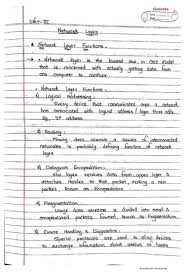 UNIT-III
Network Layer
Network Layer Functions :-
→ Network layer is the lowest one in OSI model
that is concerned with actually getting data from
one computer to another.
Network Layer Functions :-
1) Logical Addressing :-
Every device that communicates over a network
has associated with logical address / login that
2) Routing :-
Moving data across a series of interconnected
networks is probably defining function of network
layer
3) Datagram Encapsulation :-
layer receives data from upper layer &
attaches Header to that packet, making a new
packet known as Encapsulation.
4) Fragmentation :-
Large data is divided into small &
encapsulated packets formed, known as Fragmentation
5) Error Handling & Diagnostics :-
Special protocols are used to allow devices
to exchange information about status of hosts